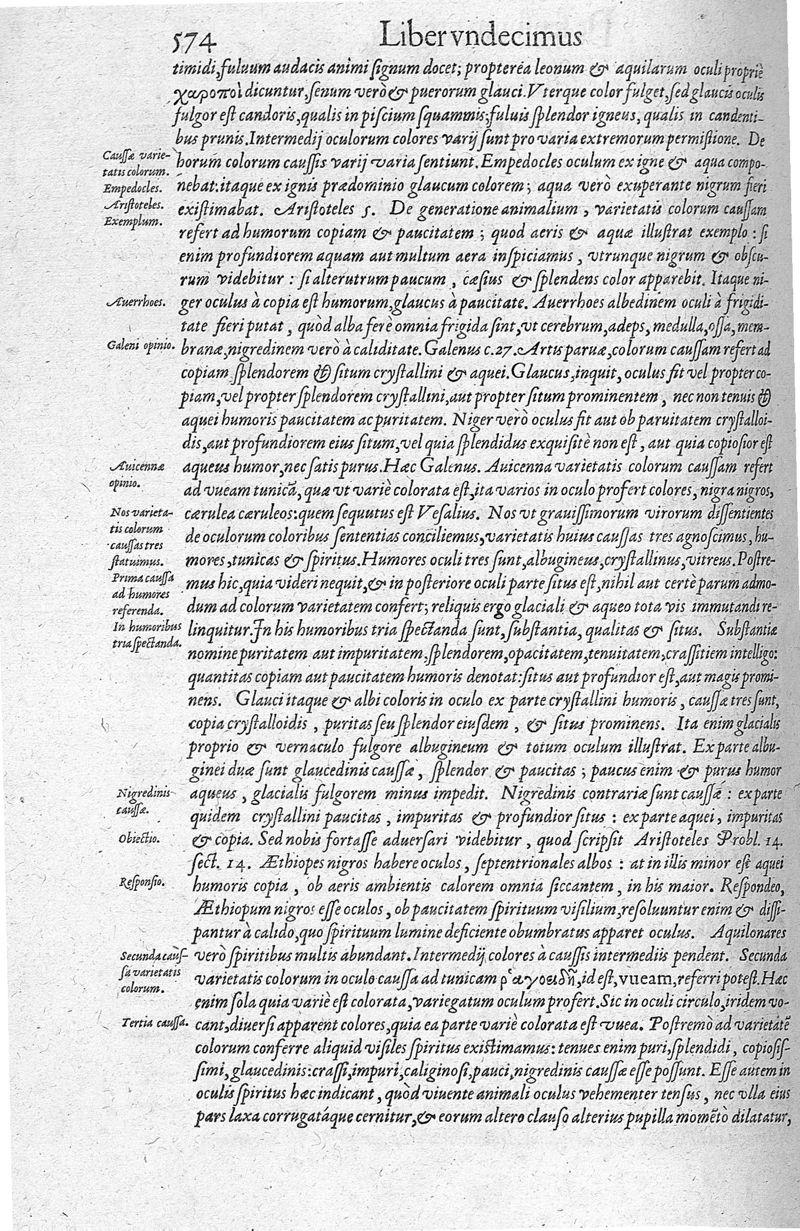 574 Liber vndecimus
timidi, fuluum audacis animi signum docet; propterea leonum & aquilarum oculi propriè
χαροποὶ dicuntur, senum verò & puerorum glauci. Vterque color fulget, sed glaucis oculis
fulgor est candoris, qualis in piscium squammis; fuluis splendor igneus, qualis in candenti-
bus prunis. Intermedij oculorum colores varij sunt pro varia extremorum permistione. De
Caussæ varie-
tatis colorum.
horum colorum caussis varij varia sentiunt. Empedocles oculum ex igne & aqua compo-
Empedocles.
nebat: itaque ex ignis prædominio glaucum colorem; aqua verò exuperante nigrum fieri
Aristoteles.
existimabat. Aristoteles 5. De generatione animalium, varietatis colorum caussam
Exemplum.
refert ad humorum copiam & paucitatem; quod aeris & aquæ illustrat exemplo: si
enim profundiorem aquam aut multum aera inspiciamus, vtrunque nigrum & obscu-
rum videbitur: si alterutrum paucum, cæsius & splendens color apparebit. Itaque ni-
Auerrhoes.
ger oculus à copia est humorum, glaucus à paucitate. Auerrhoes albedinem oculi à frigidi-
tate fieri putat, quòd alba ferè omnia frigida sint, vt cerebrum, adeps, medulla, ossa, mem-
Galeni opinio.
branæ, nigredinem verò à caliditate. Galenus c. 27. Artis paruæ, colorum caussam refert ad
copiam, splendorem & situm crystallini & aquei. Glaucus, inquit, oculus fit vel propter co-
piam, vel propter splendorem crystallini, aut propter situm prominentem, nec non tenuis &
aquei humoris paucitatem ac puritatem. Niger verò oculus fit aut ob paruitatem crystalloi-
dis, aut profundiorem eius situm, vel quia splendidus exquisitè non est, aut quia copiosior est
Auicennæ
opinio.
aqueus humor, nec satis purus. Hæc Galenus. Auicenna varietatis colorum caussam refert
ad vueam tunicã, quæ vt variè colorata est, ita varios in oculo profert colores, nigra nigros,
Nos varieta-
tis colorum
caussas tres
statuimus.
cærulea cæruleos: quem sequutus est Vesalius. Nos vt grauissimorum virorum dissentientes
de oculorum coloribus sententias conciliemus, varietatis huius caussas tres agnoscimus, hu-
mores, tunicas & spiritus. Humores oculi tres sunt, albugineus, crystallinus, vitreus. Postre-
Prima caussa
ad humores
referenda.
mus hic, quia videri nequit, & in posteriore oculi parte situs est, nihil aut certè parum admo-
dum ad colorum varietatem confert; reliquis ergo glaciali & aqueo tota vis immutandi re-
In humoribus
tria spectanda.
linquitur. In his humoribus tria spectanda sunt, substantia, qualitas & situs. Substantiæ
nomine puritatem aut impuritatem, splendorem, opacitatem, tenuitatem, crassitiem intelligo:
quantitas copiam aut paucitatem humoris denotat: situs aut profundior est, aut magis promi-
nens. Glauci itaque & albi coloris in oculo ex parte crystallini humoris, caussæ tres sunt,
copia crystalloidis, puritas seu splendor eiusdem, & situs prominens. Ita enim glacialis
proprio & vernaculo fulgore albugineum & totum oculum illustrat. Ex parte albu-
ginei duæ sunt glaucedinis caussæ, splendor & paucitas; paucus enim & purus humor
Nigredinis
caussæ.
aqueus, glacialis fulgorem minus impedit. Nigredinis contrariæ sunt caussæ: ex parte
quidem crystallini paucitas, impuritas & profundior situs: ex parte aquei, impuritas
Obiectio.
& copia. Sed nobis fortasse aduersari videbitur, quod scripsit Aristoteles Probl. 14.
sect. 14. Æthiopes nigros habere oculos, septentrionales albos: at in illis minor est aquei
Responsio.
humoris copia, ob aeris ambientis calorem omnia siccantem, in his maior. Respondeo,
Æthiopum nigros esse oculos, ob paucitatem spirituum visilium, resoluuntur enim & dissi-
pantur à calido, quo spirituum lumine deficiente obumbratus apparet oculus. Aquilonares
Secunda caus-
sa varietatis
colorum.
verò spiritibus multis abundant. Intermedij colores à caussis intermediis pendent. Secunda
varietatis colorum in oculo caussa ad tunicam ῥαγοειδῆ, id est, vueam, referri potest. Hæc
enim sola quia variè est colorata, variegatum oculum profert. Sic in oculi circulo, iridem vo-
Tertia caussa.
cant, diuersi apparent colores, quia ea parte variè colorata est vuea. Postremò ad varietatẽ
colorum conferre aliquid visiles spiritus existimamus: tenues enim puri, splendidi, copiosis-
simi, glaucedinis: crassi, impuri, caliginosi, pauci, nigredinis caussæ esse possunt. Esse autem in
oculis spiritus hæc indicant, quòd viuente animali oculus vehementer tensus, nec vlla eius
pars laxa corrugatáque cernitur, & eorum altero clauso alterius pupilla momẽtò dilatatur,